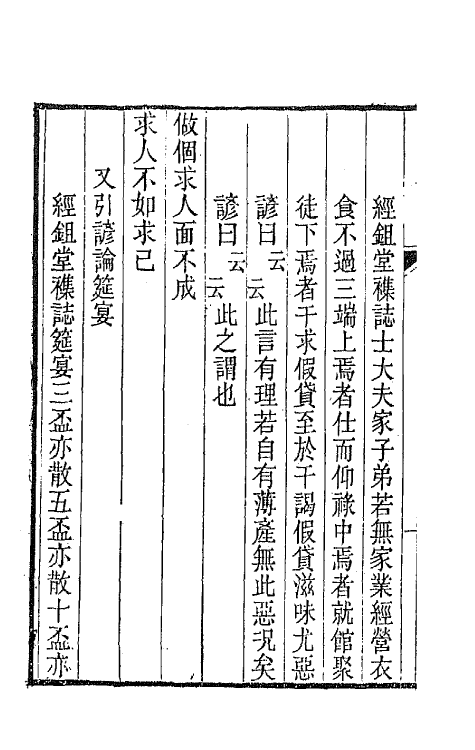 經鉏堂襍誌士大夫家子弟若無家業經營衣
食不過三端上焉者仕而仰祿中焉者就館聚
徒下焉者干求假貸至於干謁假貸滋味尤惡
諺曰云云此言有理若自有薄產無此惡況矣
諺曰云云此之謂也
做個求人面不成
求人不如求己
又引諺論筵宴
經鉏堂襍誌筵宴三盃亦散五盃亦散十盃亦